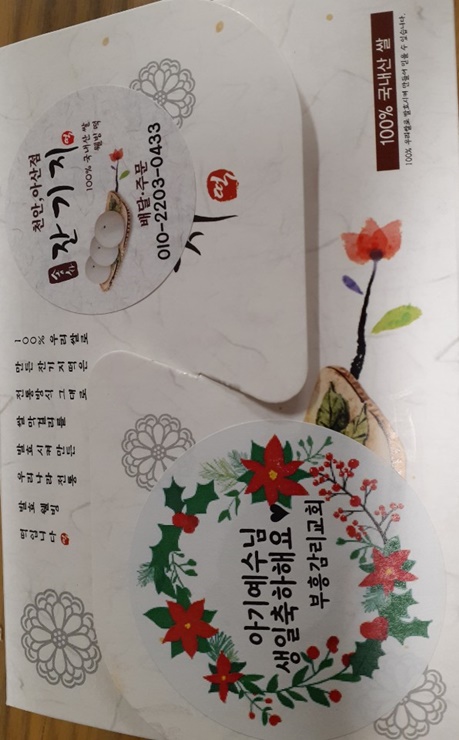 천안,아산점
잔기지떡
100% 국내산 쌀
웰빙 떡
배달·주문
010-2203-0433
떡
100% 국내산 쌀
100% 우리쌀로 발효시켜 만들어 믿을 수 있습니다.
100% 우리쌀로
만든 잔기지떡은
전통방식 그대로
쌀막걸리를
발효시켜 만든
우리나라 전통
발효 웰빙
떡입니다
아기예수님
생일축하해요♥
부흥감리교회